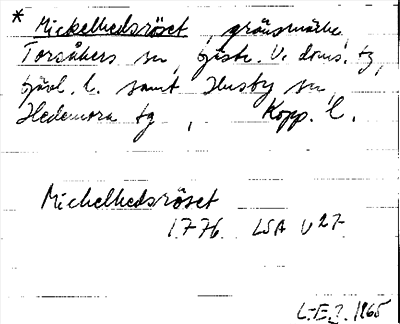 * Mickelhedsröset, gränsmärke,
Torsåkers sn, Gästr. V. doms. tg,
Gävl. l. samt Husby sn,
Hedemora tg, Kopp. l.
Michelhedsröset
1776 LSA U27.
L-E. J. 1965